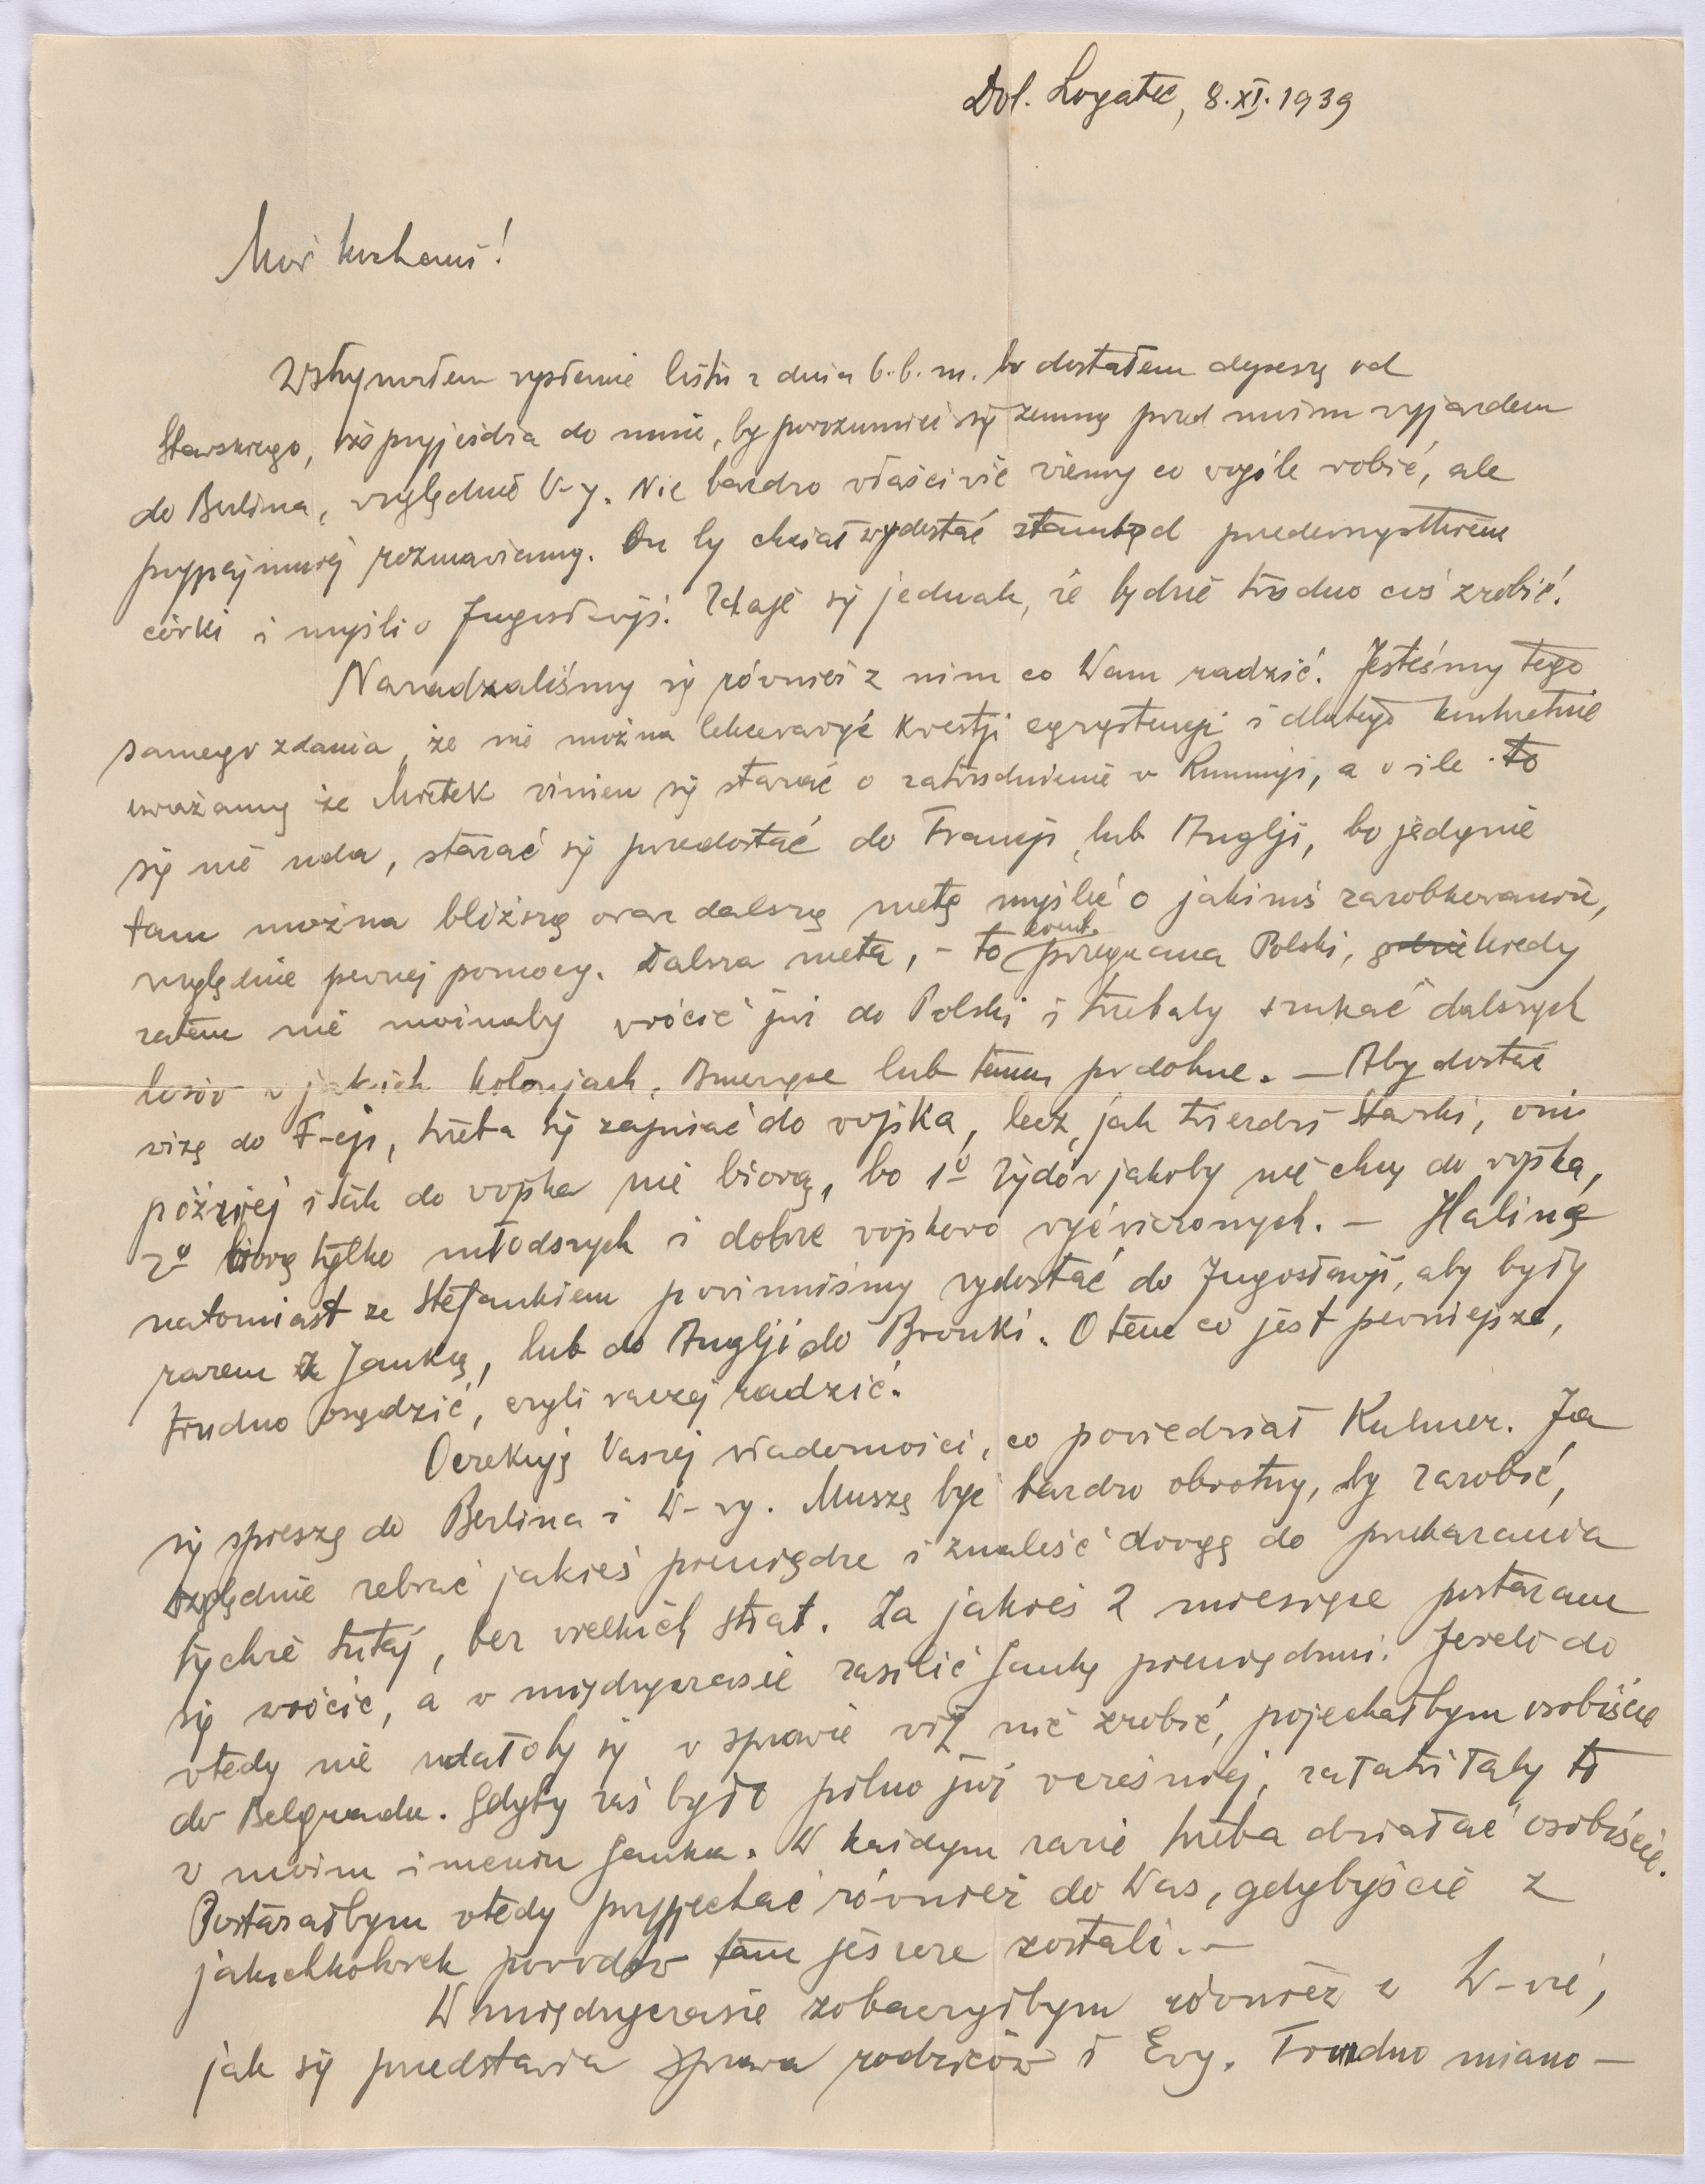 Dol. Logatec, 8.XI.1939
Moi kochani!
Wstrzymałem wysłanie listu z dnia 6.b.m. bo dostałem depeszę od
Stawskiego, iż przyjeżdża do mnie, by porozumieć się zemną przed moim wyjazdem
do Berlina, względnie W-y. Nie bardzo właściwie wiemy co wogóle robić, ale
przynajmniej rozmawiamy. On by chciał wydostać stamtąd przedewszystkiem
córki i myśli o Jugosławji. Zdaje się jednak, że będzie trudno coś zrobić.
Naradzaliśmy się również z nim co Wam radzić. Jesteśmy tego
samego zdania, że nie można lekceważyć kwestji egzystencji i dlatego konkretnie
uważamy że Mietek winien się starać o zatrudnienie w Rumunji, a o ile to
się nie uda, starać się przedostać do Francji lub Anglji, bo jedynie
tam można bliższą oraz dalszą metę myśleć o jakimś zarobkowaniu,
względnie pewnej pomocy. Dalsza meta, - to przegrana Polski, gdzie kiedy
zatem nie możnaby wrócić już do Polski i trzebaby szukać dalszych
losów w jakich kolonjach, Ameryce lub temu podobne. — Aby dostać
wizę do F-cji, trzeba się zapisać do wojska, lecz, jak twierdzi Stawski, oni
później i tak do wojska nie biorą, bo 1º Żydów jakoby nie chcą do wojska,
2º biorą tylko młodszych i dobrze wojskowo wyćwiczonych. — Halinę
natomiast ze Stefankiem powinniśmy wydostać do Jugosławji, aby byli
razem z Janką, lub do Anglji do Bronki. O tem co jest pewniejsze,
trudno osądzić, czyli raczej radzić.
Oczekuję Waszej wiadomości, co powiedział Kulmer. Ja
się spieszę do Berlina i W-wy. Muszę być bardzo obrotny, by zarobić,
względnie zebrać jakieś pieniądze i znaleść drogę do przekazania
tychże tutaj, bez wielkich strat. Za jakieś 2 miesiące postaram
się wrócić, a w międzyczasie zasilić Jankę pieniędzmi. Jeżeli do
wtedy nie udałoby się w sprawie wiz nic zrobić, pojechałbym osobiście
do Belgradu. Gdyby zaś było pilno już wcześniej, załatwiłaby to
w moim imieniu Janka. W każdym razie trzeba działać osobiście.
Postarałbym wtedy przyjechać również do Was, gdybyście z
jakichkolwiek powodów tam jeszcze zostali. —
W międzyczasie zobaczyłbym również w W-wie,
jak się przedstawia sprawa rodziców i Ewy. Trudno miano-